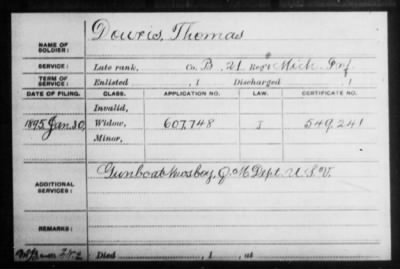 NAME OF SOLDIER: Dowris, Thomas
SERVICE: Late rank, Co. B, 21 Reg't Mich. Inf.
TERM OF SERVICE: Enlisted , 1 Discharged , 1
DATE OF FILING. CLASS. APPLICATION NO. LAW. CERTIFICATE NO.
Invalid,
1895 Jan. 30, Widow, 607,748 J 549,241
Minor,
ADDITIONAL SERVICES: Gunboat Mosby, Q M Dept. U S V.
REMARKS:
Died , 1 , at